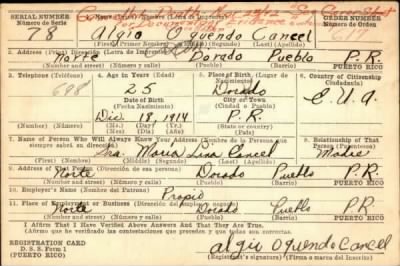 SERIAL NUMBER
Número de Serie
78
Algio Oquendo Cancel
ORDER NUMBER
Número de Orden
1. Name (Print) Nombre (Letra de Imprenta)
(First) (Primer Nombre) (Middle) (Segundo) (Last) (Apellido)
2. Address (Print) Dirección (Letra de Imprenta)
Norte Dorado Pueblo P.R.
(Number and street) (Número y calle) (Pueblo) (Barrio) PUERTO RICO
3. Telephone (Teléfono)
698
4. Age in Years (Edad)
25
Date of Birth
(Fecha Nacimiento)
Dic. 18, 1914
(Mo.) (Day) (Yr.)
(Mes) (Día) (Año)
5. Place of Birth (Lugar de Nacimiento)
Dorado
City or Town
(Ciudad o Pueblo)
P.R.
(State or country)
(Estado o país)
6. Country of Citizenship
(Ciudadanía)
E.U.A.
7. Name of Person Who Will Always Know Your Address
siempre sabrá su dirección)
Sra. Maria Lina Cancel
(First) (Nombre) (Middle) (Segundo) (Last) (Apellido)
8. Relationship of That Person
(Parentesco)
Madre
9. Address of That Person (Dirección de esa persona)
Norte Dorado Pueblo P.R.
(Number and street) (Número y calle) (Pueblo) (Barrio) PUERTO RICO
10. Employer's Name (Nombre del Patrono)
Propio
11. Place of Employment or Business (Dirección del empleo negocio)
Norte Dorado Pueblo P.R.
(Number and street) (Número y calle) (Pueblo) (Barrio) PUERTO RICO
I Affirm That I Have Verified Above Answers And That They Are True.
(Afirmo que he verificado las contestaciones que preceden y que todas son correctas.
REGISTRATION CARD
D. S. S. Form 1
PUERTO RICO
Algio Oquendo Cancel
(Registrant's signature) (Firma)